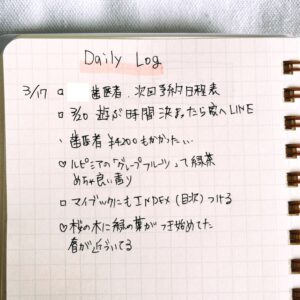 Daily Log
3/17 □ 歯医者 次回予約日程表
□ 3/20 遊ぶ時間決まったら家へLINE
・ 歯医者 ¥4200もかかった…
♡ ルピシアの「グレープフルーツ」って緑茶
めちゃ良い香り
□ マイブックにもINDEX(目次)つける
♡ 桜の木に緑の葉がつき始めてた
春が近づいてる